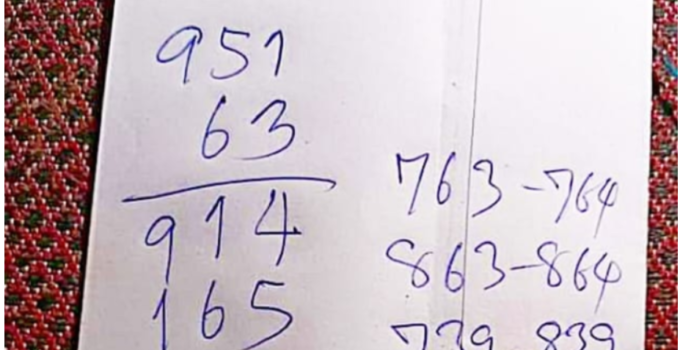 951
63
914
165
763-764
863-864
739 839